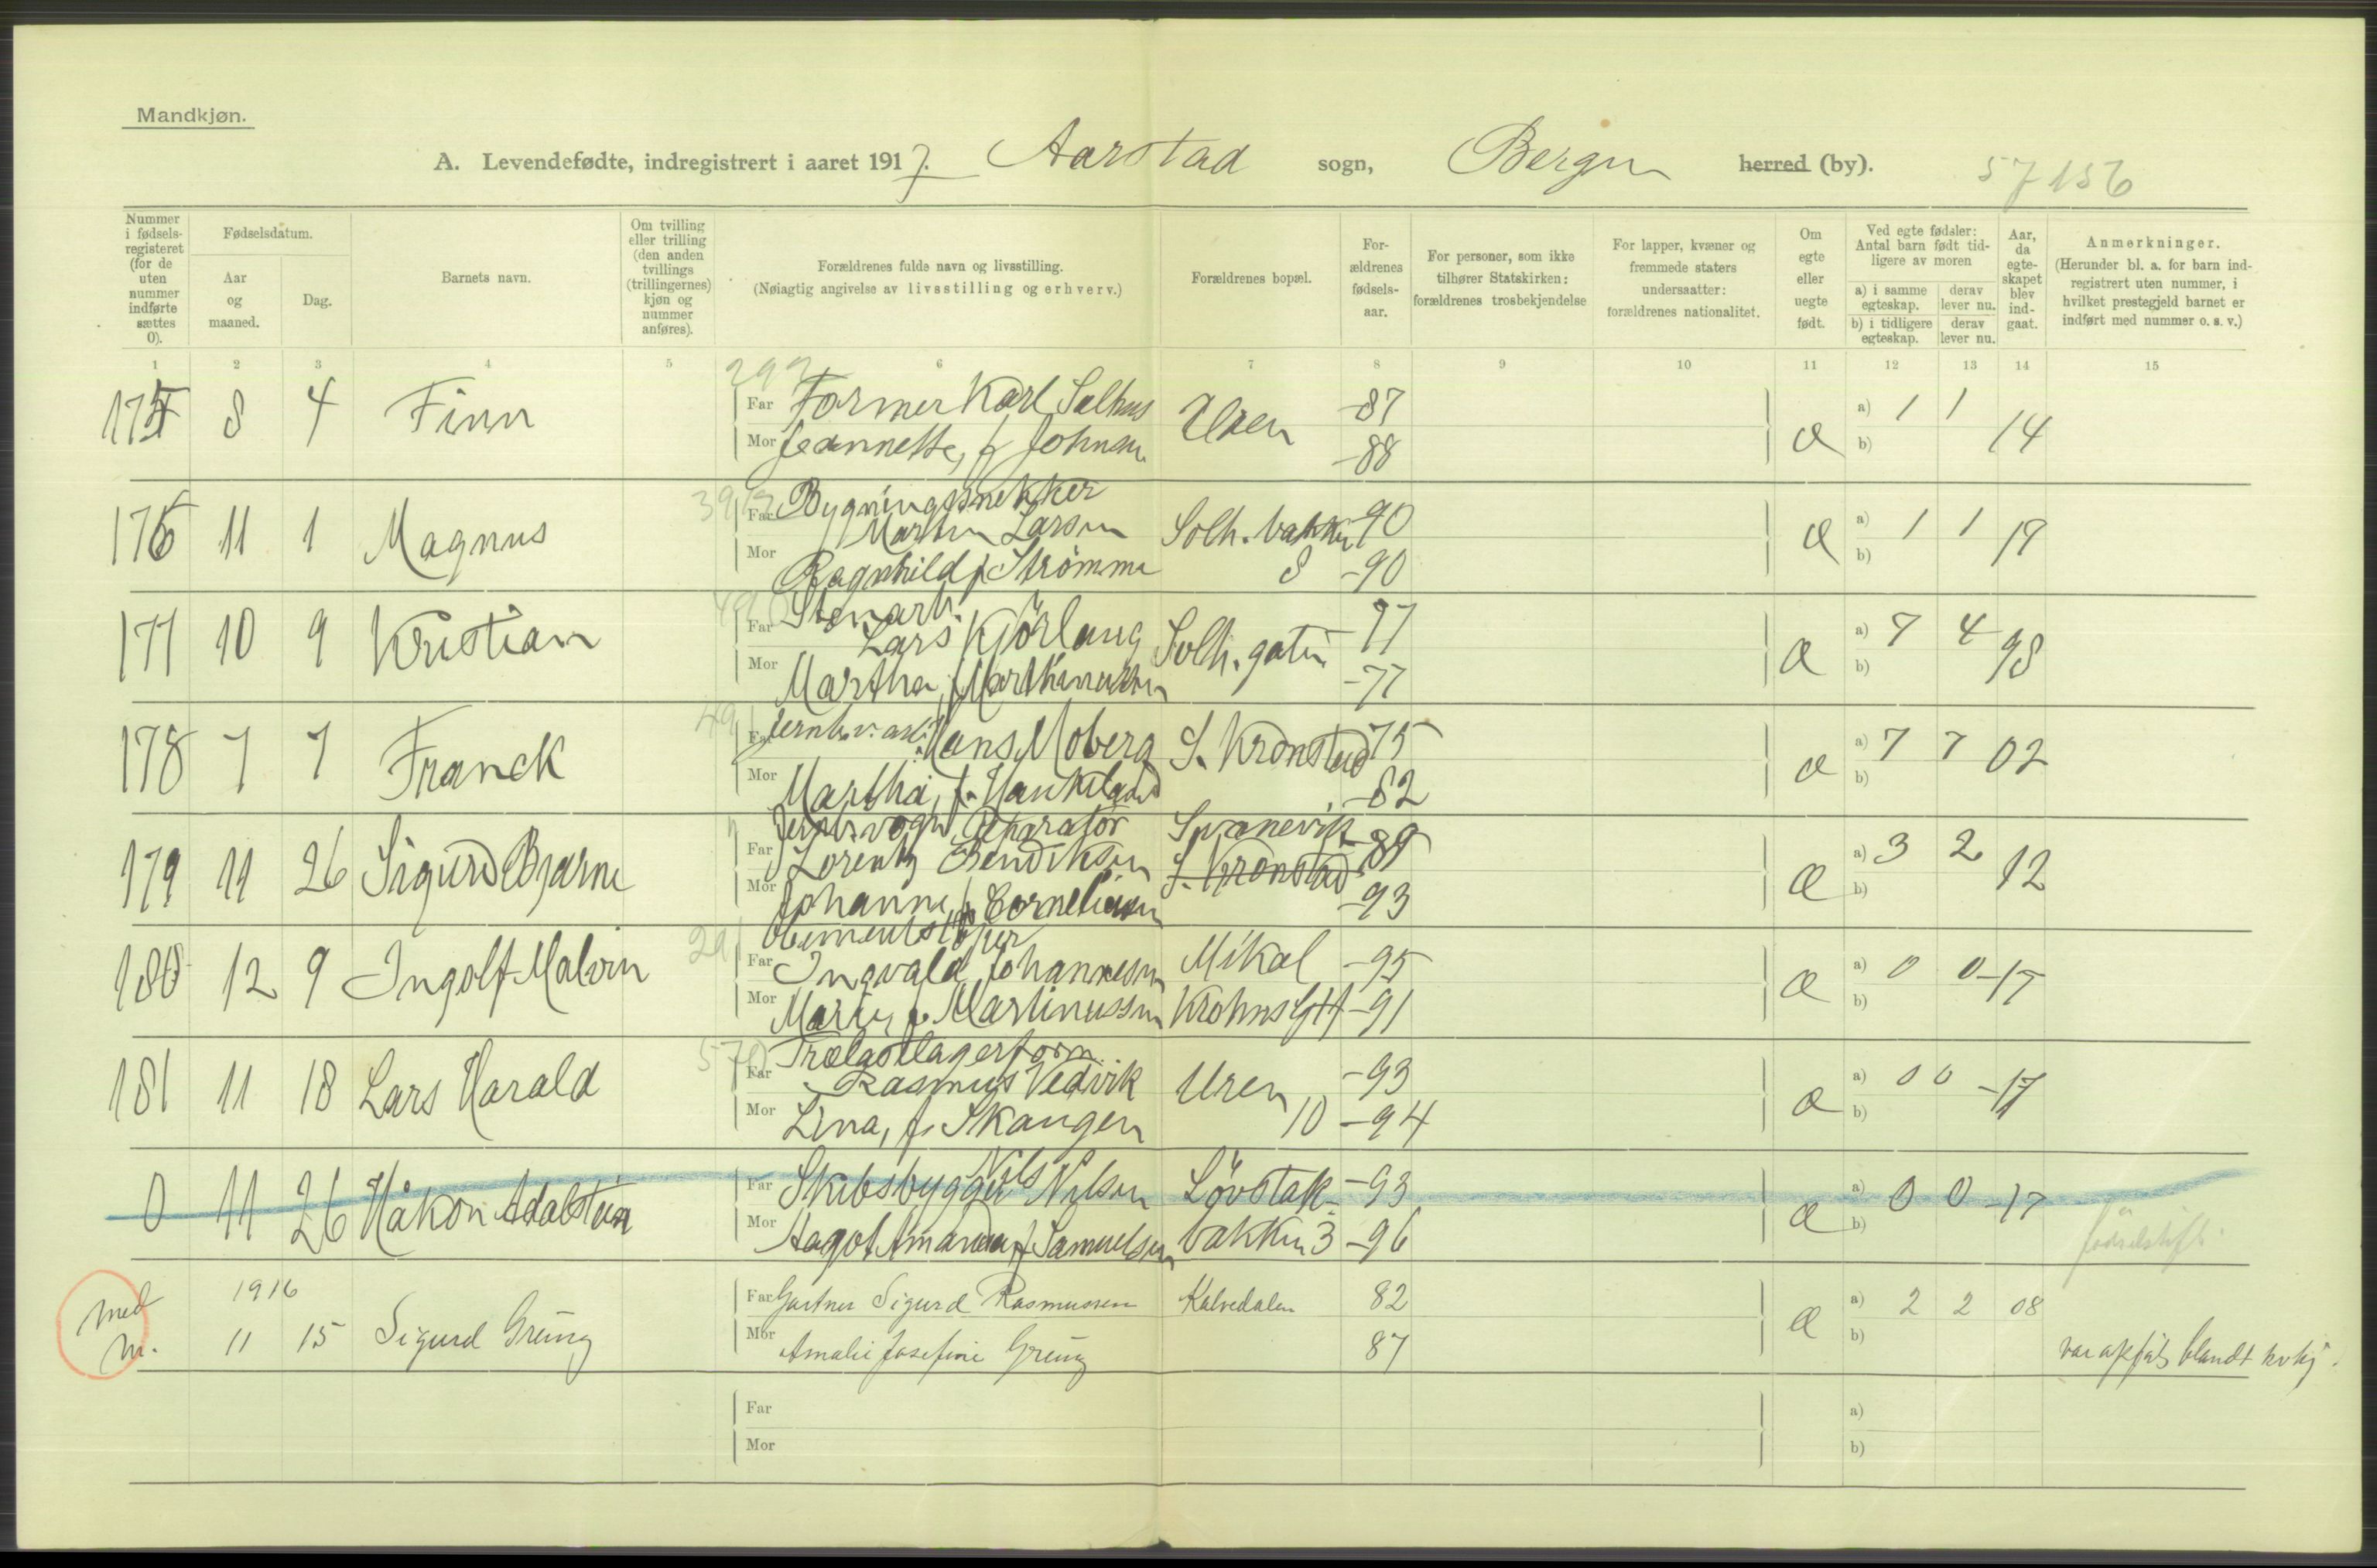 Mandkjøn.
A. Levendefødte, indregistrert i aaret 1917. Aarstad sogn, Bergen herred (by). 57156
Nummer i fødsels-registeret (for de uten nummer indførte sættes 0).
Fødselsdatum.
Aar og maaned.
Dag.
Barnets navn.
Om tvilling eller trilling (den anden tvillings (trillingernes) kjøn og nummer anføres).
Forældrenes fulde navn og livsstilling.
(Nøiagtig angivelse av livsstilling og erhverv.)
Forældrenes bopæl.
For-ældrenes fødsels-aar.
For personer, som ikke tilhører Statskirken: forældrenes trosbekjendelse
For lapper, kvæner og fremmede staters undersaatter: forældrenes nationalitet.
Om egte eller uegte født.
Ved egte fødsler: Antal barn født tid-ligere av moren
a) i samme egteskap. derav lever nu.
b) i tidligere egteskap. derav lever nu.
Aar, da egte-skapet blev ind-gaat.
Anmerkninger.
(Herunder bl. a. for barn ind-registrert uten nummer, i hvilket prestegjeld barnet er indført med nummer o. s. v.)
1 2 3 4 5 6 7 8 9 10 11 12 13 14 15
175 8 4 Finn Far Former Karl Salhus Uren -87 Æ a) 1 1 14
Mor Jeannette, f. Johnsen -88 b)
176 11 1 Magnus Far Bygningssnekker Martin Larsen Solh. bakken 8 -90 Æ a) 1 1 17
Mor Ragnhild f. Strømme -90 b)
177 10 9 Kristian Far Stenarb. Lars Kjörlaug Solh. gaten -77 Æ a) 7 4 98
Mor Martha, f. Marthinussen -77 b)
178 7 7 Franck Far Jernb.v. arb. Hans Moberg S. Kronstad 75 Æ a) 7 7 02
Mor Martha, f. Haukeland -82 b)
179 11 26 Sigurd Bjarne Far Jernb.vogn Reparatör Lorentz Bendiksen Svanevik S. Kronstad -89 Æ a) 3 2 12
Mor Johanne f. Corneliusen -93 b)
180 12 9 Ingolf Malvin 291 Far Cementstöper Ingvald Johannesen Mikal -95 Æ a) 0 0 -17
Mor Marie, f. Martinussen Krohns Gt -91 b)
181 11 18 Lars Harald Far Trælastlagerform. Rasmus Vedvik Uren 10 -93 Æ a) 0 0 -17
Mor Lina, f. Skaugen -94 b)
0 11 26 Håkon Adalstein Far Skibsbygger Nils Nilsen Lövstak- -93 Æ a) 0 0 -17
Mor Aagot Amanda, f. Samuelsen bakken 3 -96 b)
med nr. 1916 11 15 Sigurd Greung Far Gartner Sigurd Rasmussen Kalvedalen 82 Æ a) 2 2 08
Mor Amalie Josefine Greung 87 b) var opført blandt kvkj.
Far a)
Mor b)